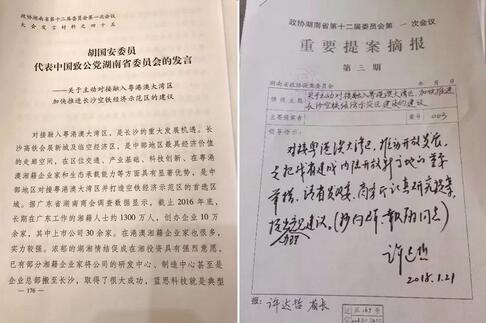 政协湖南省第十二届委员会第一次会议
大会发言材料之四十五
胡国安委员
代表中国致公党湖南省委员会的发言
——关于主动对接融入粤港澳大湾区
加快推进长沙空铁经济示范区的建议
对接融入粤港澳大湾区，是长沙的重大发展机遇。长
沙高铁会展新城及临空经济区，是中部地区最具经济价值
的走廊空间，在区位交通、产业基础、科技创新、在粤港
澳湘籍企业家和生态承载能力等方面具有显著优势，是中
部地区对接粤港澳大湾区并打造空铁经济示范区的首选区
域。据广东省湖南商会调查数据显示，截止 2016 年底，
长期在广东工作的湘籍人士约 1300 万人，创办企业 10 万
余家，其中上市公司 30 余家。在港澳湘籍企业家也很多，
实力较强。浓郁的湖湘情结促成在湘投资具有强烈意愿，
已有部分湘籍企业家将公司的研发中心、制造中心甚至是
企业总部搬至长沙，取得了很大成功，蓝思科技就是典型
— 176 —
政协湖南省第十二届委员会第一次会议
重要提案摘报
第三期
湖南省政协提案委员会
2018年1月
提案主题
关于主动对接融入粤港澳大湾区，加快推进
长沙空铁经济示范区建设的建议
主要提案者
案号
003
领导批示：
对接粤港澳大湾区，推动开放发展，
是把我省建成内陆开放新高地的重要
举措。请省发改委、商务厅认真研究提案，
提出意见建议。
许达哲
2018.1.21
报：许达哲 省长